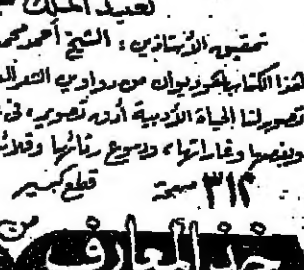 لعبد الملك
تحقيق الأستاذين : الشيخ أحمد محمـ
هذا الكتاب هو ديوان من دواوين الشعر
تصوير لنا الحياة الأدبية أدق تصوير، فى
وغاراتها، ودموع رثائها
٣١٢ صفحة قطع كبير
من
المعارف